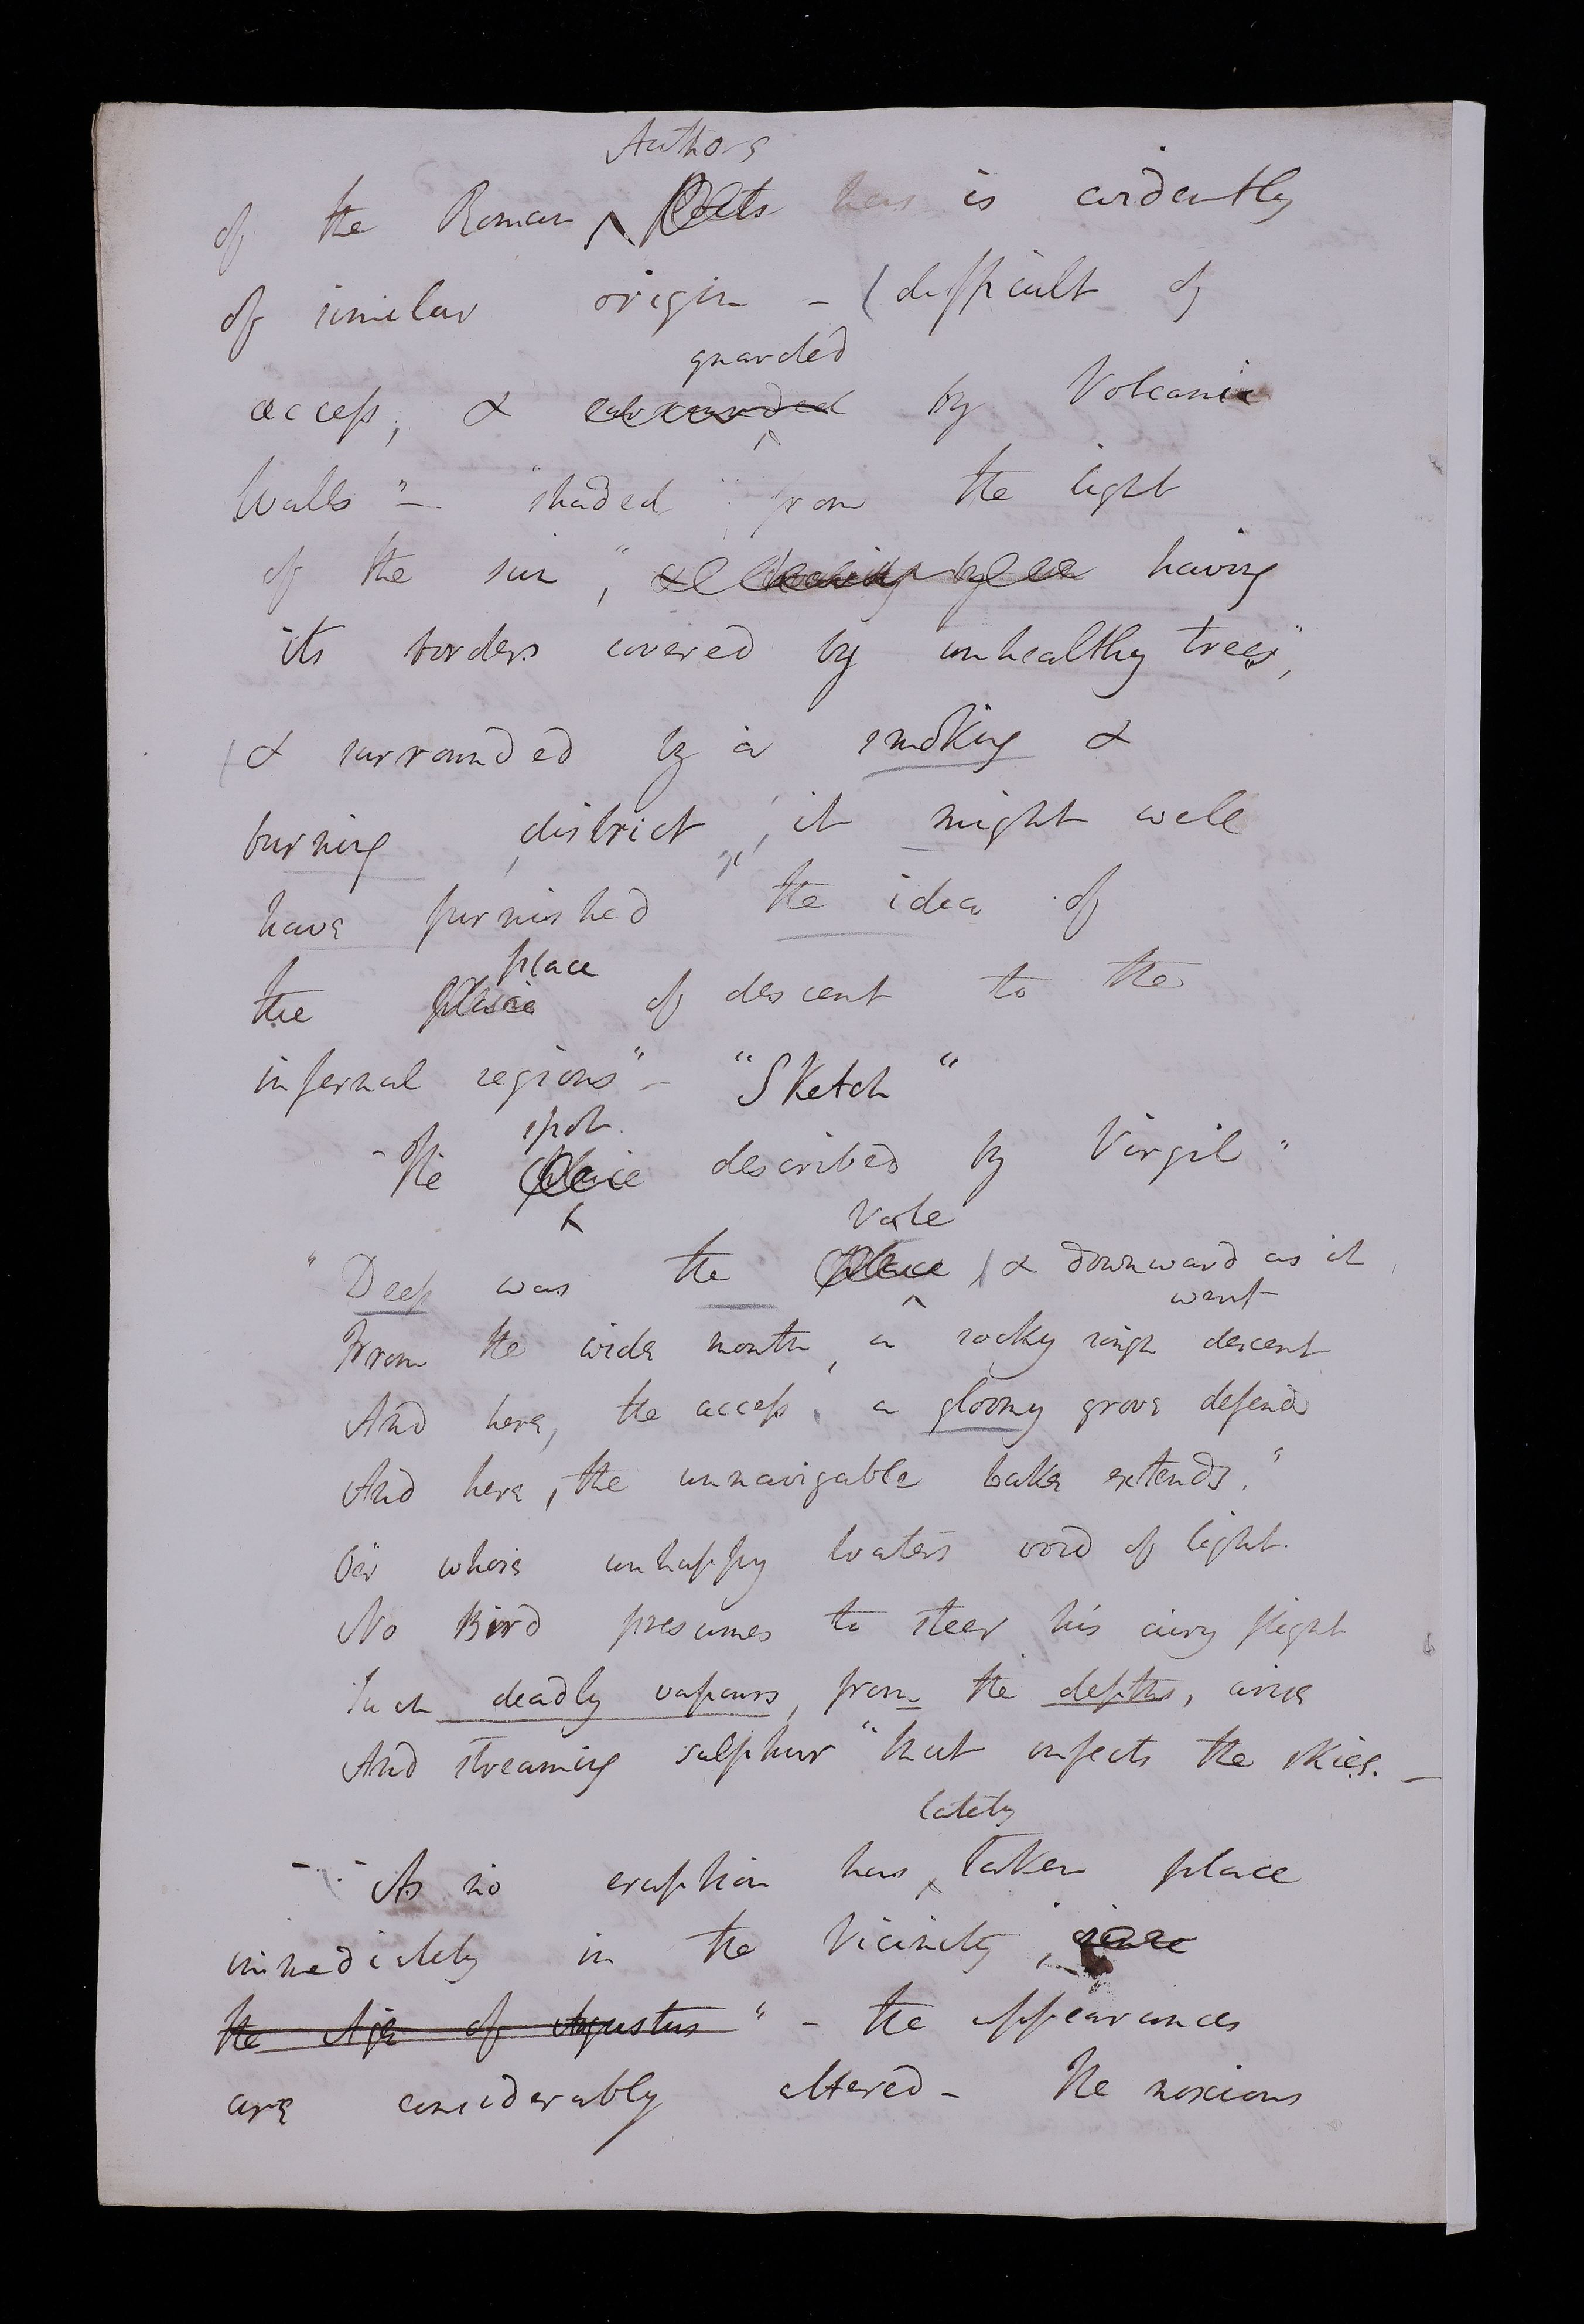 Authors
of the Roman ^ Poets has is evidently
of similar origin - (difficult of
guarded
access, & surrounded by Volcanic
Walls" - "shaded from the light
of the sun," having
its borders covered by unhealthy trees",
& surrounded by a smoking &
burning district", it might well
have furnished the idea of
place
the place of descent to the
infernal regions" - "Sketch"
spot
- The place described by Virgil"
Vale
"Deep was the place & downward as it
went
From the wide mouth, a rocky rough descent
And here, the access, a gloomy grove defend
And here, the unnavigable Lake extends."
O'er whose unhappy waters void of light.
No Bird presumes to steer his airy flight
Such deadly vapours, from the depths, arise
And streaming sulphur "that infects the skies. -
lately
- As no eruption has ^ taken place
immediately in the Vicinity, since
the Age of Agustus" - the appearances
are considerably altered - The noxious